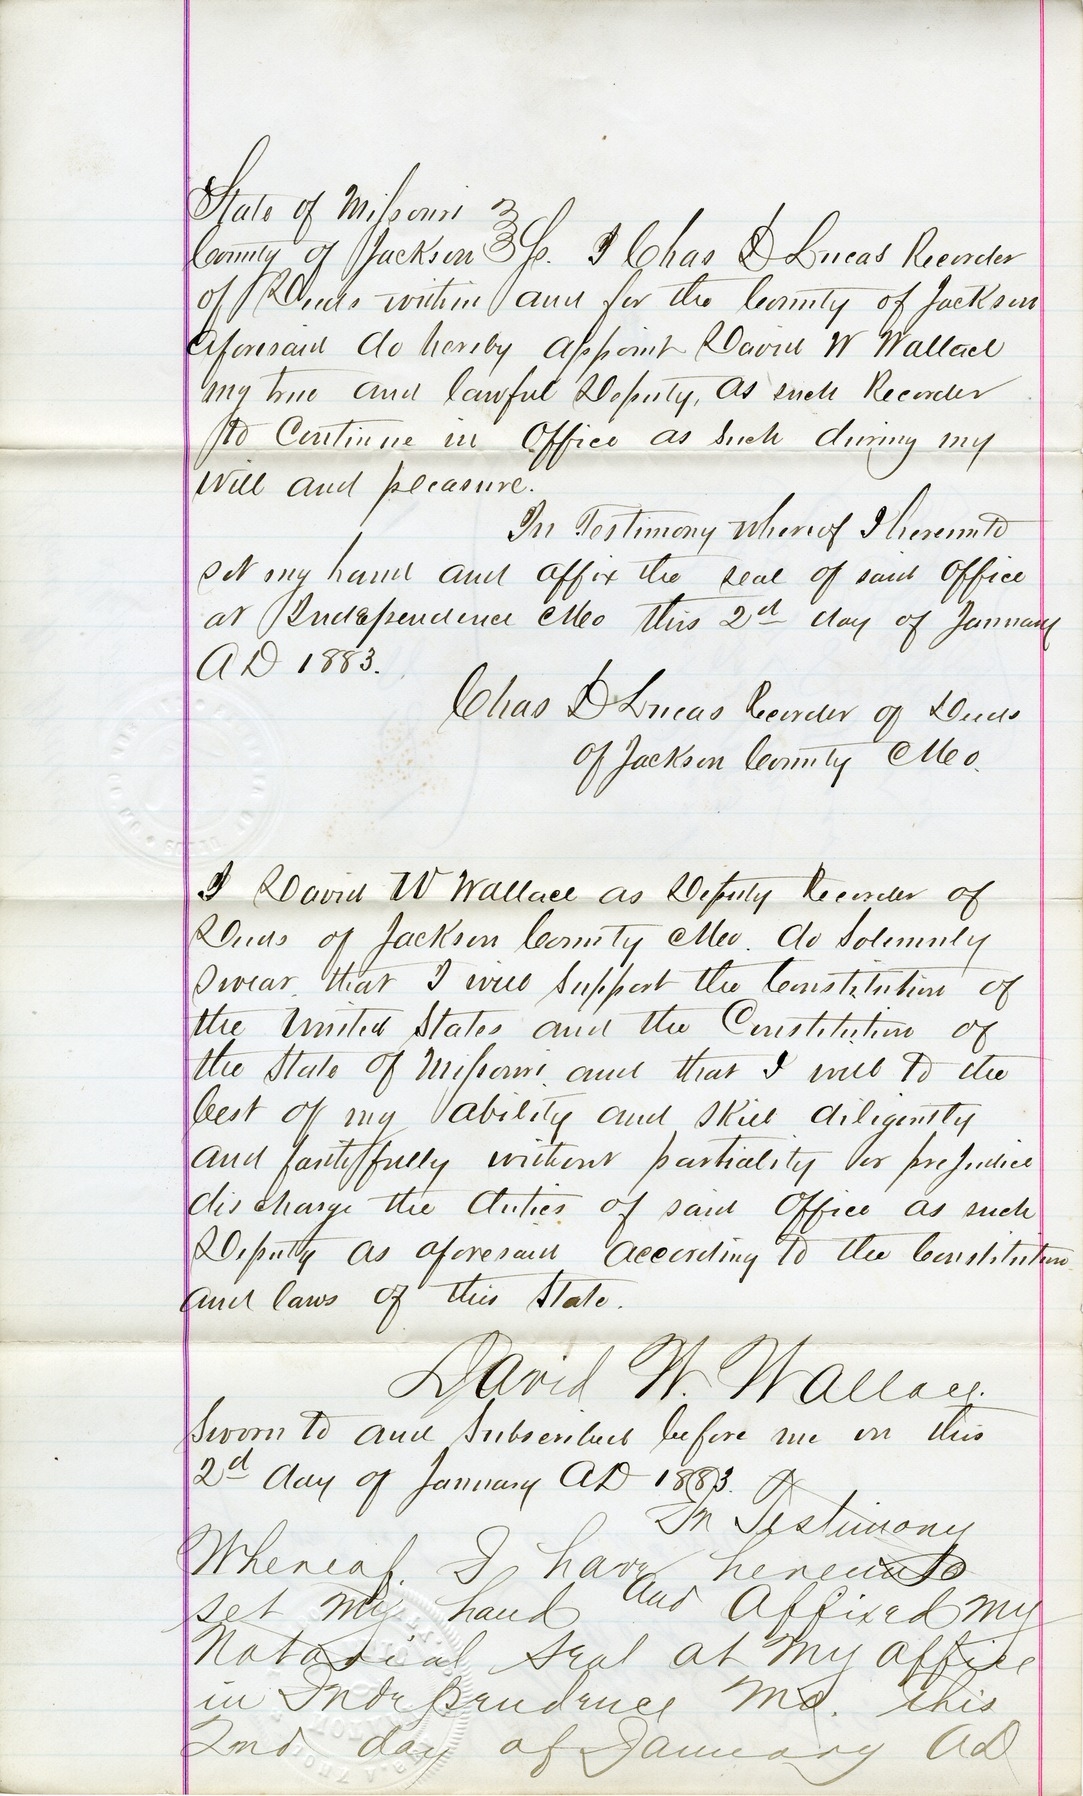 State of Missouri
County of Jackson } Ss. I Chas D Lucas Recorder
of Deeds within and for the County of Jackson
aforesaid do hereby appoint David W Wallace
my true and lawful Deputy, as such Recorder
to Continue in Office as Such during my
will and pleasure.
In Testimony whereof I hereunto
set my hand and affix the seal of said Office
at Independence Mo this 2d day of January
AD 1883.
Chas D Lucas Recorder of Deeds
of Jackson County Mo.
I David W Wallace as Deputy Recorder of
Deeds of Jackson County Mo. do Solemnly
Swear that I will Support the Constitution of
the United States and the Constitution of
the State of Missouri and that I will to the
best of my ability and skill diligently
and faithfully without partiality or prejudice
discharge the duties of said Office as such
Deputy as aforesaid according to the Constitution
and laws of this State.
David W. Wallace.
Sworn to and Subscribed before me on this
2d day of January AD 1883.
In Testimony
Whereof, I have hereunto
set my hand and Affixed my
Notarial Seal at my office
in Independence Mo. this
2nd day of January AD